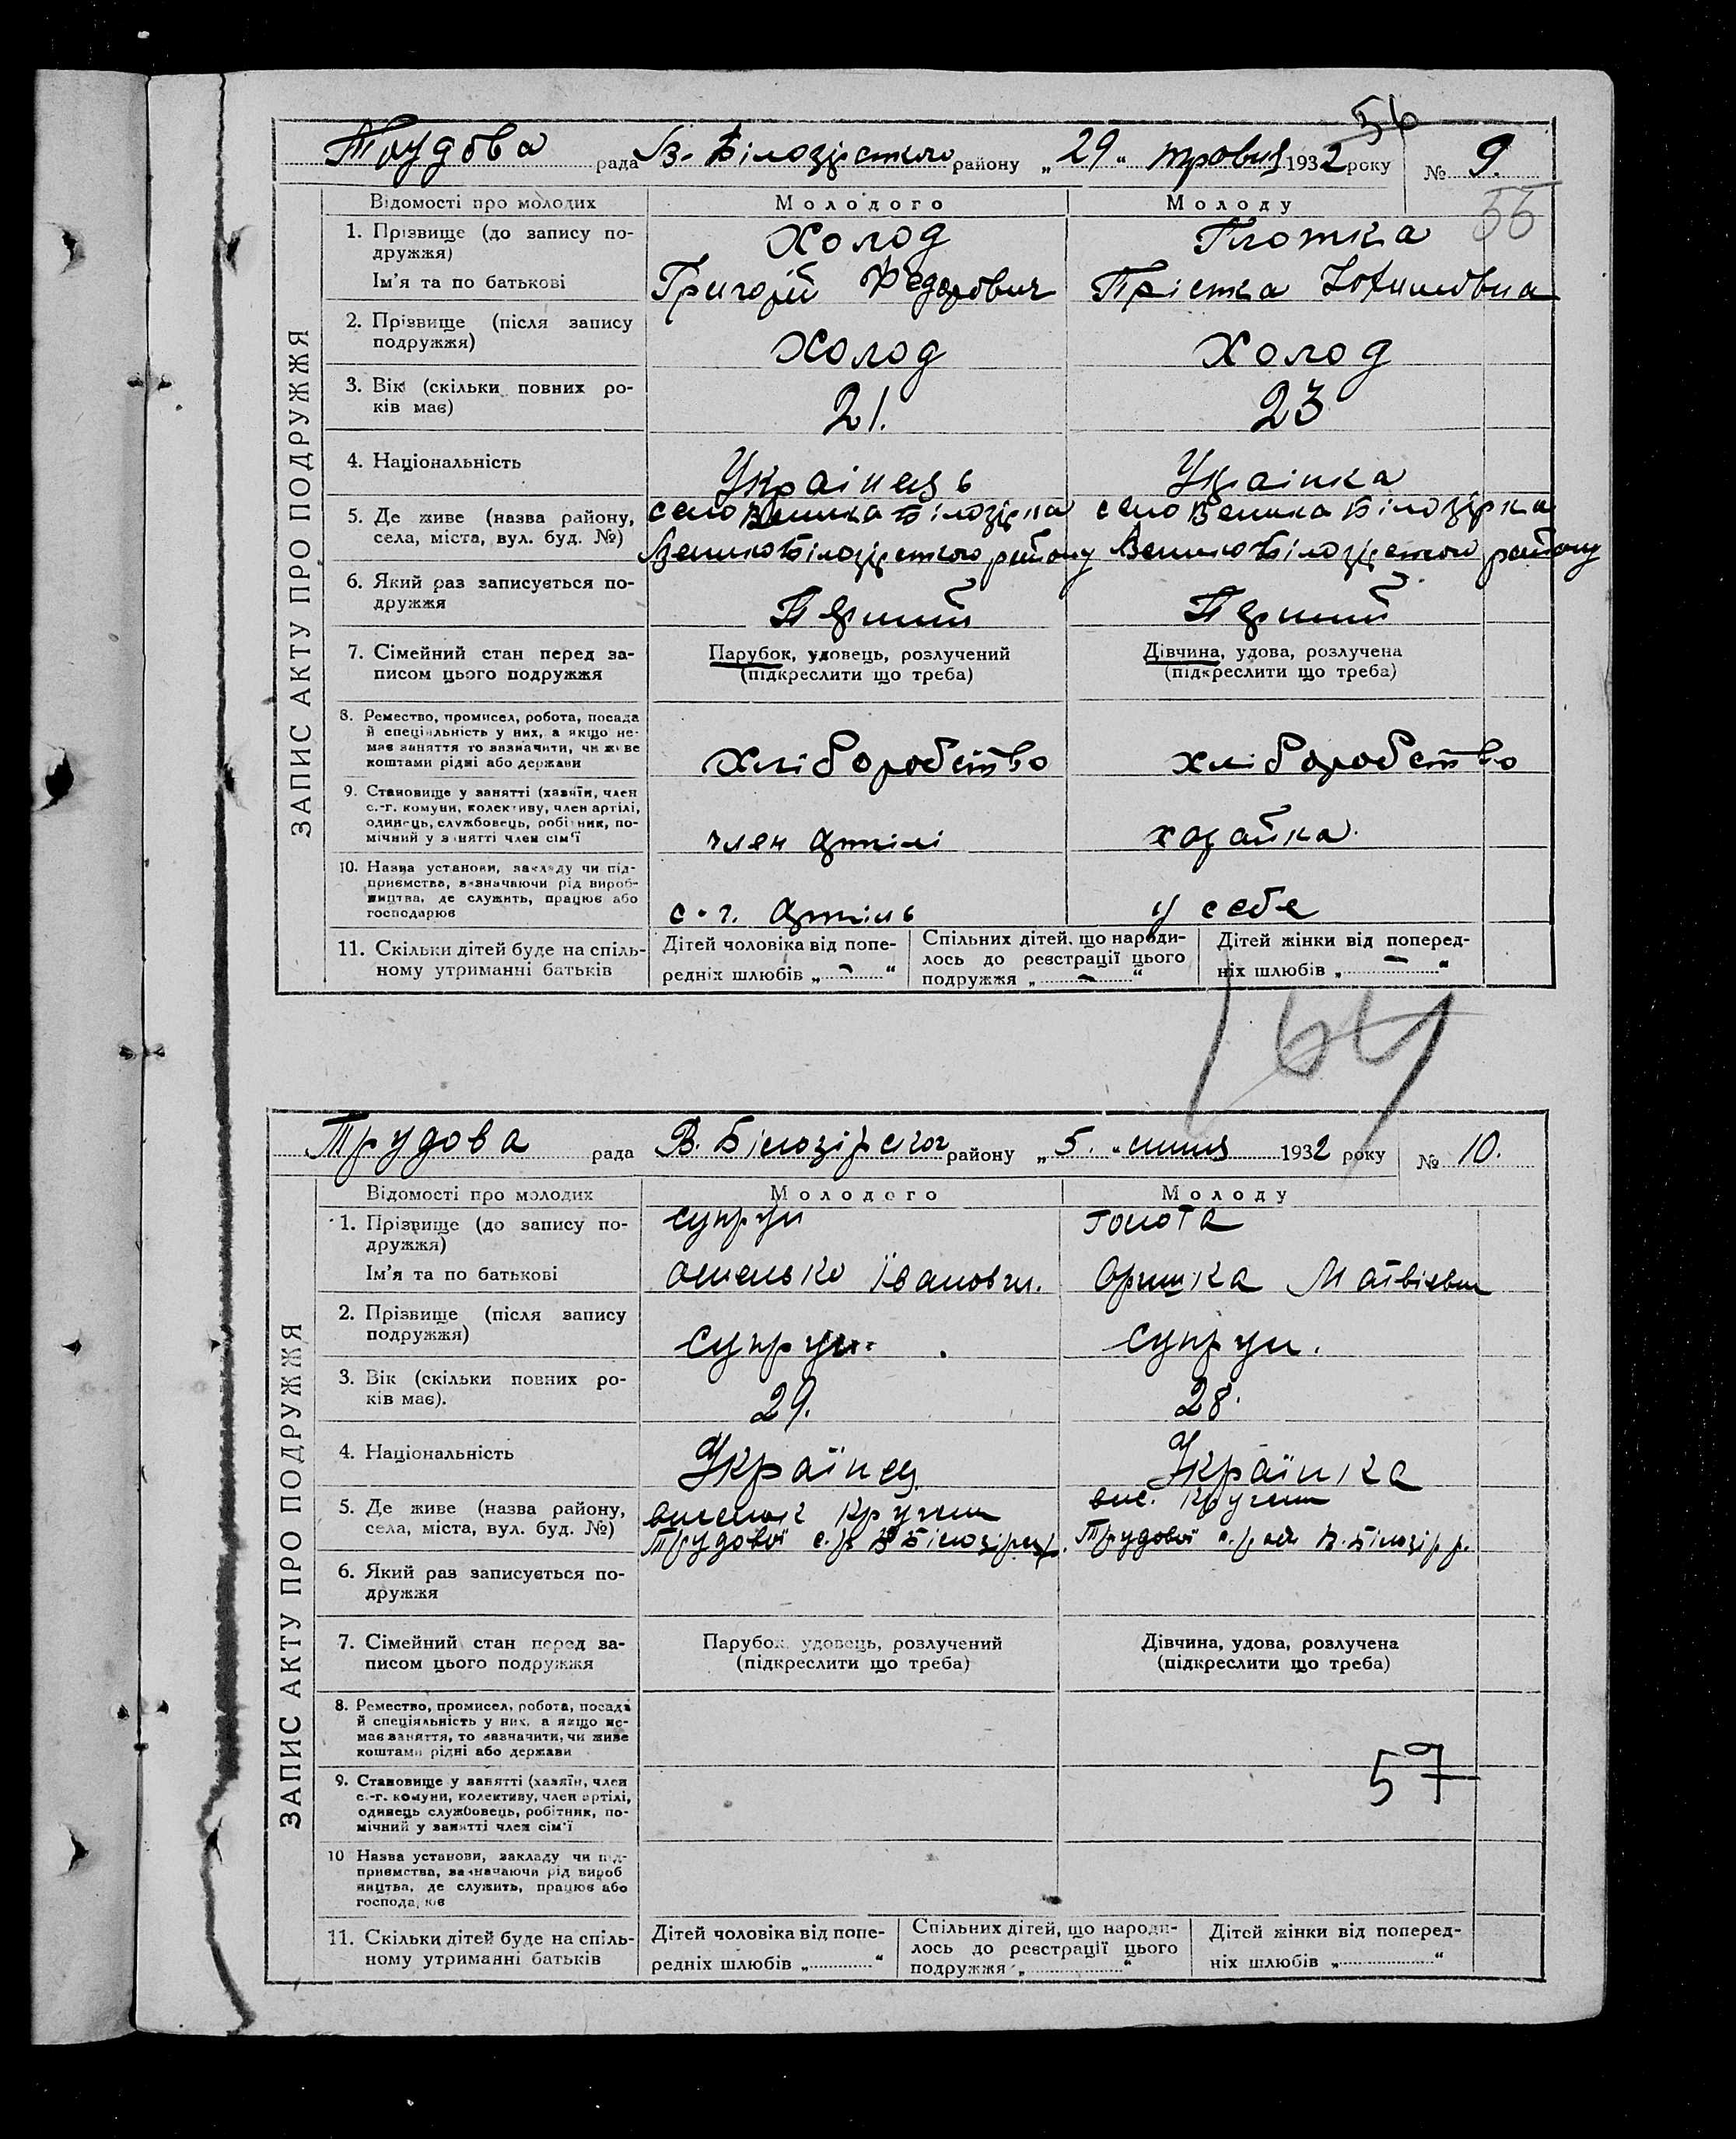 56
Трудова рада В-Білозірського району „29“ травня 1932 року № 9.
55
ЗАПИС АКТУ ПРО ПОДРУЖЖЯ
Відомості про молодих Молодого Молоду
1. Прізвище (до запису по-
дружжя) Холод Плотка
Ім'я та по батькові Григорій Федорович Пріська Юхимовна
2. Прізвище (після запису
подружжя) Холод Холод
3. Вік (скільки повних ро-
ків має) 21. 23
4. Національність Українець Українка
5. Де живе (назва району, село Велика Білозірка село Велика Білозірка
села, міста, вул. буд. №) ВеликоБілозірського району ВеликоБілозірського району
6. Який раз записується по-
дружжя Перший Перший
7. Сімейний стан перед за- Парубок, удовець, розлучений Дівчина, удова, розлучена
писом цього подружжя (підкреслити що треба) (підкреслити що треба)
8. Ремество, промисел, робота, посада
й спеціяльність у них, а якщо не-
має заняття то зазначити, чи живе
коштами рідні або держави хліборобство хліборобство
9. Становище у занятті (хазяїн, член
с.-г. комуни, колективу, член артілі,
одинець, службовець, робітник, по-
мічний у занятті член сім'ї член артілі хазайка
10. Назва установи, закладу чи під-
приємства, зазначаючи рід вироб-
ництва, де служить, працює або
господарює с.г. артіль у себе
11. Скільки дітей буде на спіль-
ному утриманні батьків
Дітей чоловіка від попе-
редніх шлюбів „ – “
Спільних дітей, що народи-
лось до реєстрації цього
подружжя „ – “
Дітей жінки від поперед-
ніх шлюбів „ – “
Трудова рада В. Білозірског району „5.“ 1932 року № 10.
ЗАПИС АКТУ ПРО ПОДРУЖЖЯ
Відомості про молодих Молодого Молоду
1. Прізвище (до запису по-
дружжя) Супрун Голота
Ім'я та по батькові Омелько Іванович. Оришка Матвієвн
2. Прізвище (після запису
подружжя) Супрун Супрун.
3. Вік (скільки повних ро-
ків має). 29. 28.
4. Національність Українец Українка
5. Де живе (назва району, виселок вис.
села, міста, вул. буд. №) Трудової с.р В Білозір Трудової В.Білозір р.
6. Який раз записується по-
дружжя
7. Сімейний стан перед за- Парубок, удовець, розлучений Дівчина, удова, розлучена
писом цього подружжя (підкреслити що треба) (підкреслити що треба)
8. Ремество, промисел, робота, посада
й спеціяльність у них, а якщо не-
має заняття, то зазначити, чи живе
коштами рідні або держави
57
9. Становище у занятті (хазяїн, член
с.-г. комуни, колективу, член артілі,
одинець службовець, робітник, по-
мічний у занятті член сім'ї
10 Назва установи, закладу чи під-
приємства, зазначаючи рід вироб
ництва, де служить, працює або
господарює
11. Скільки дітей буде на спіль-
ному утриманні батьків
Дітей чоловіка від попе-
редніх шлюбів „ “
Спільних дітей, що народи-
лось до реєстрації цього
подружжя „ “
Дітей жінки від поперед-
ніх шлюбів „ “